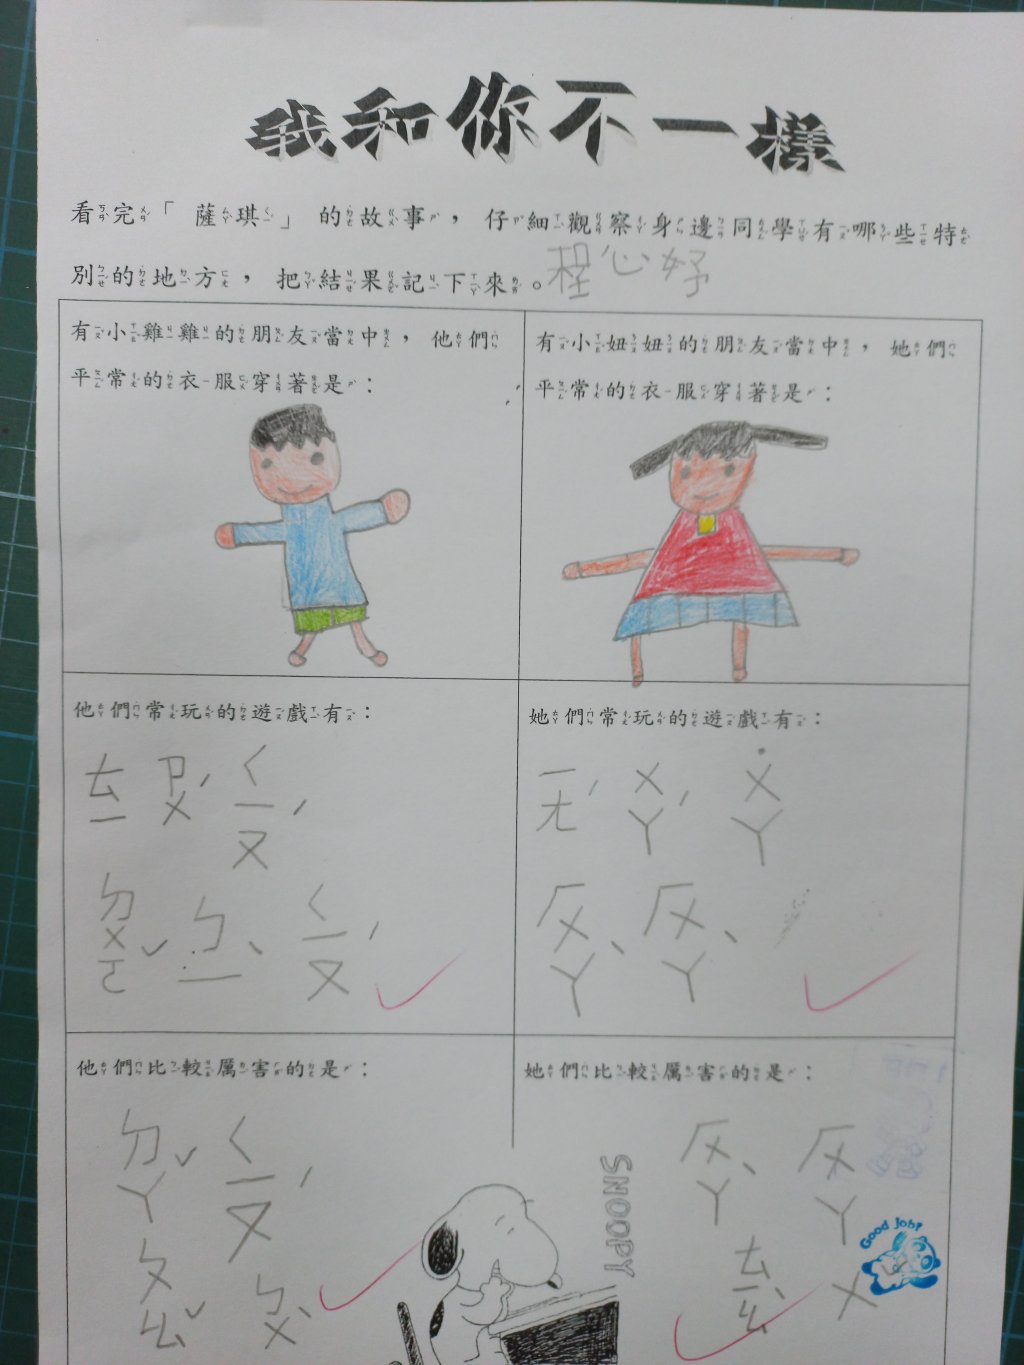 我和你不一樣
看完「薩琪」的故事,仔細觀察身邊同學有哪些特
別的地方,把結果記下來。程心妤
有小雞雞的朋友當中,他們
平常的衣服穿著是:
有小妞妞的朋友當中,她們
平常的衣服穿著是:
他們常玩的遊戲有:
ㄊㄧ ㄗㄨˊ ㄑㄧㄡˊ
ㄉㄨㄛˇ ㄅㄧˋ ㄑㄧㄡˊ
她們常玩的遊戲有:
ㄧㄤˊ ㄨㄚˊ ˙ㄨㄚ
ㄏㄨㄚˋ ㄏㄨㄚˋ
他們比較厲害的是:
ㄉㄚˇ ㄑㄧㄡˊ
ㄆㄠˇ ㄅㄨˋ
她們比較厲害的是:
ㄏㄨㄚˋ ㄏㄨㄚˋ
ㄊㄧㄠ ㄨ
SNOOPY
Good Job!